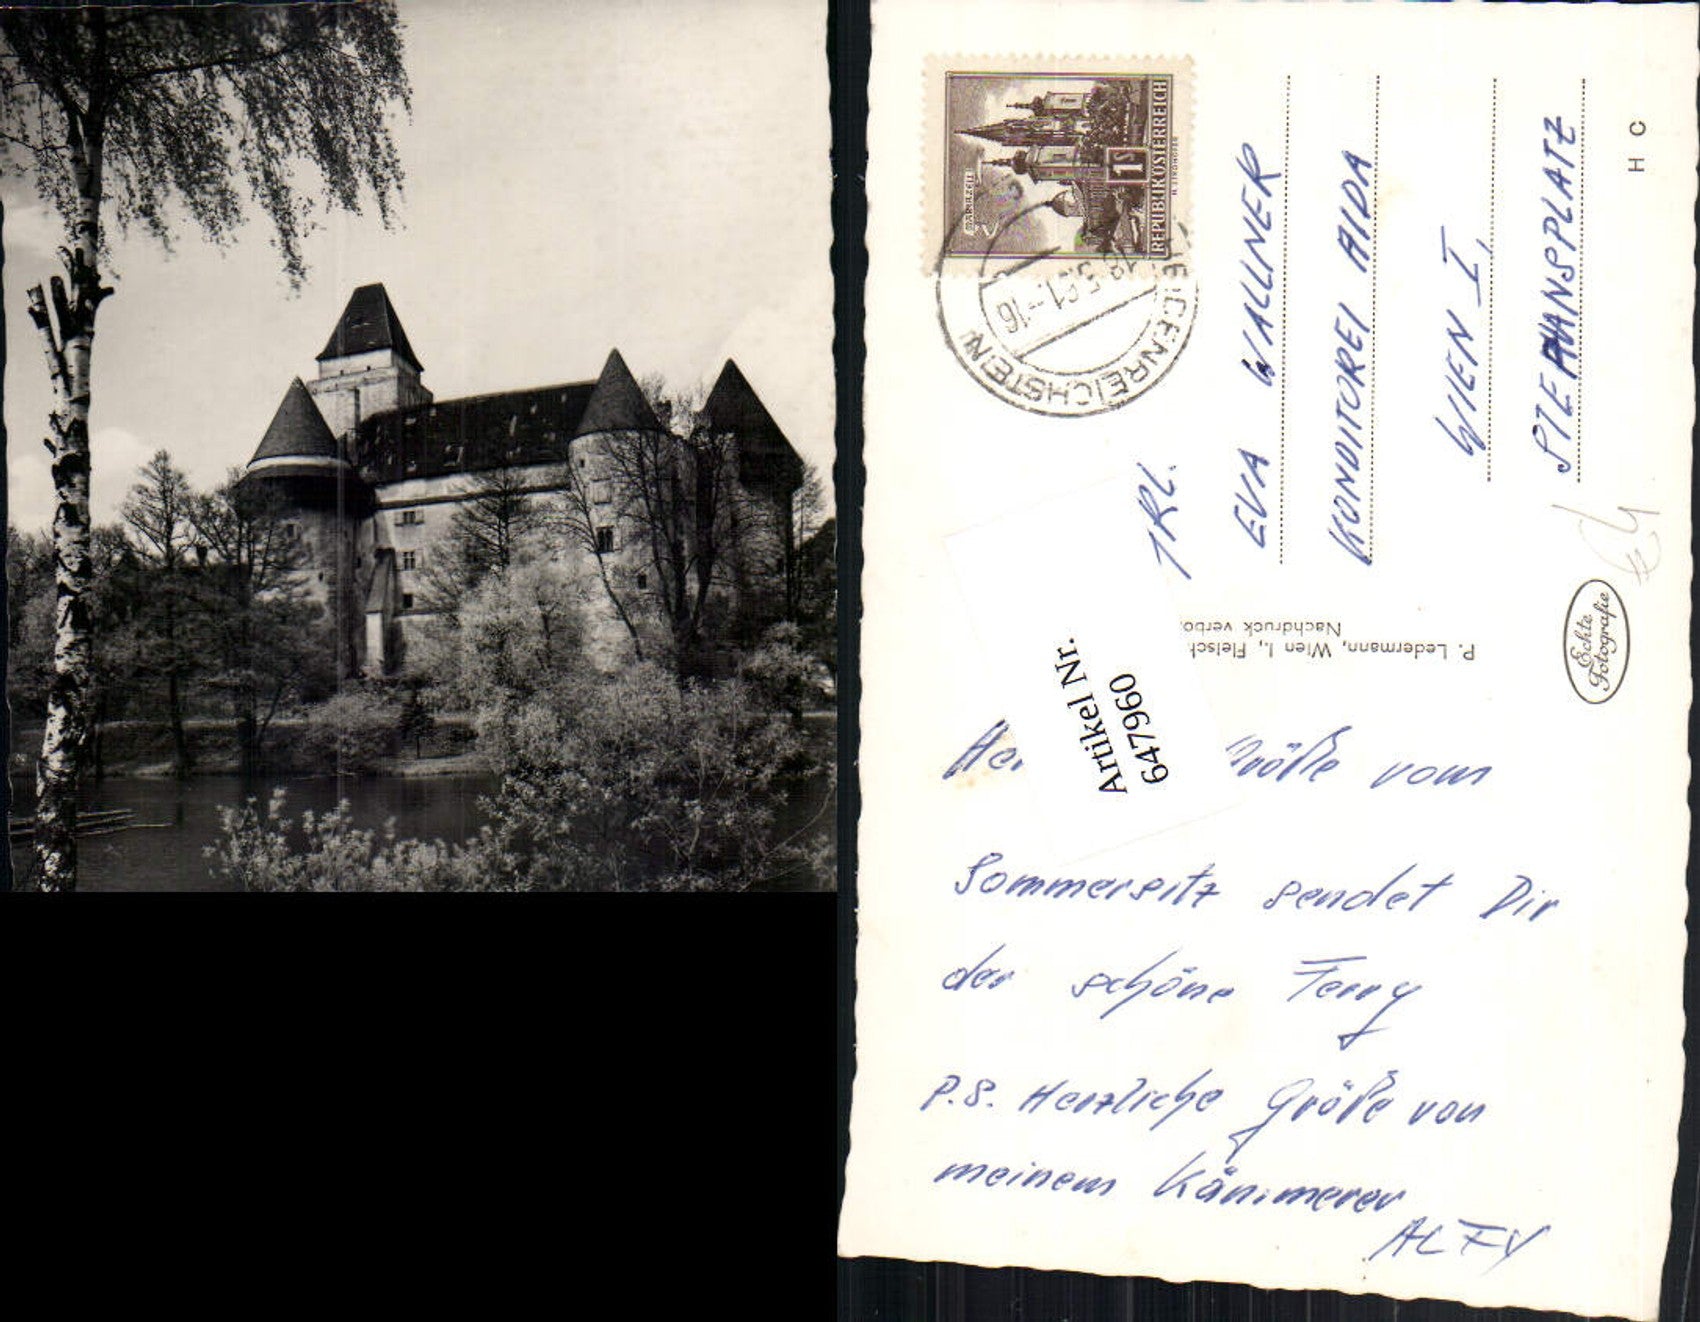 MARIAZELL
1 S
REPUBLIK ÖSTERREICH
HEIDENREICHSTEIN
18.5.61.-16
FRL.
EVA WALLNER
KONDITOREI AIDA
WIEN I,
STEPHANSPLATZ
H C
P. Ledermann, Wien I., Fleisch
Nachdruck verbo
Echte
Fotografie
Artikel Nr.
647960
He Grüße vom
Sommersitz sendet Dir
der schöne Ferry
P.S. Herzliche Grüße von
meinem Kämmerer
ALFY